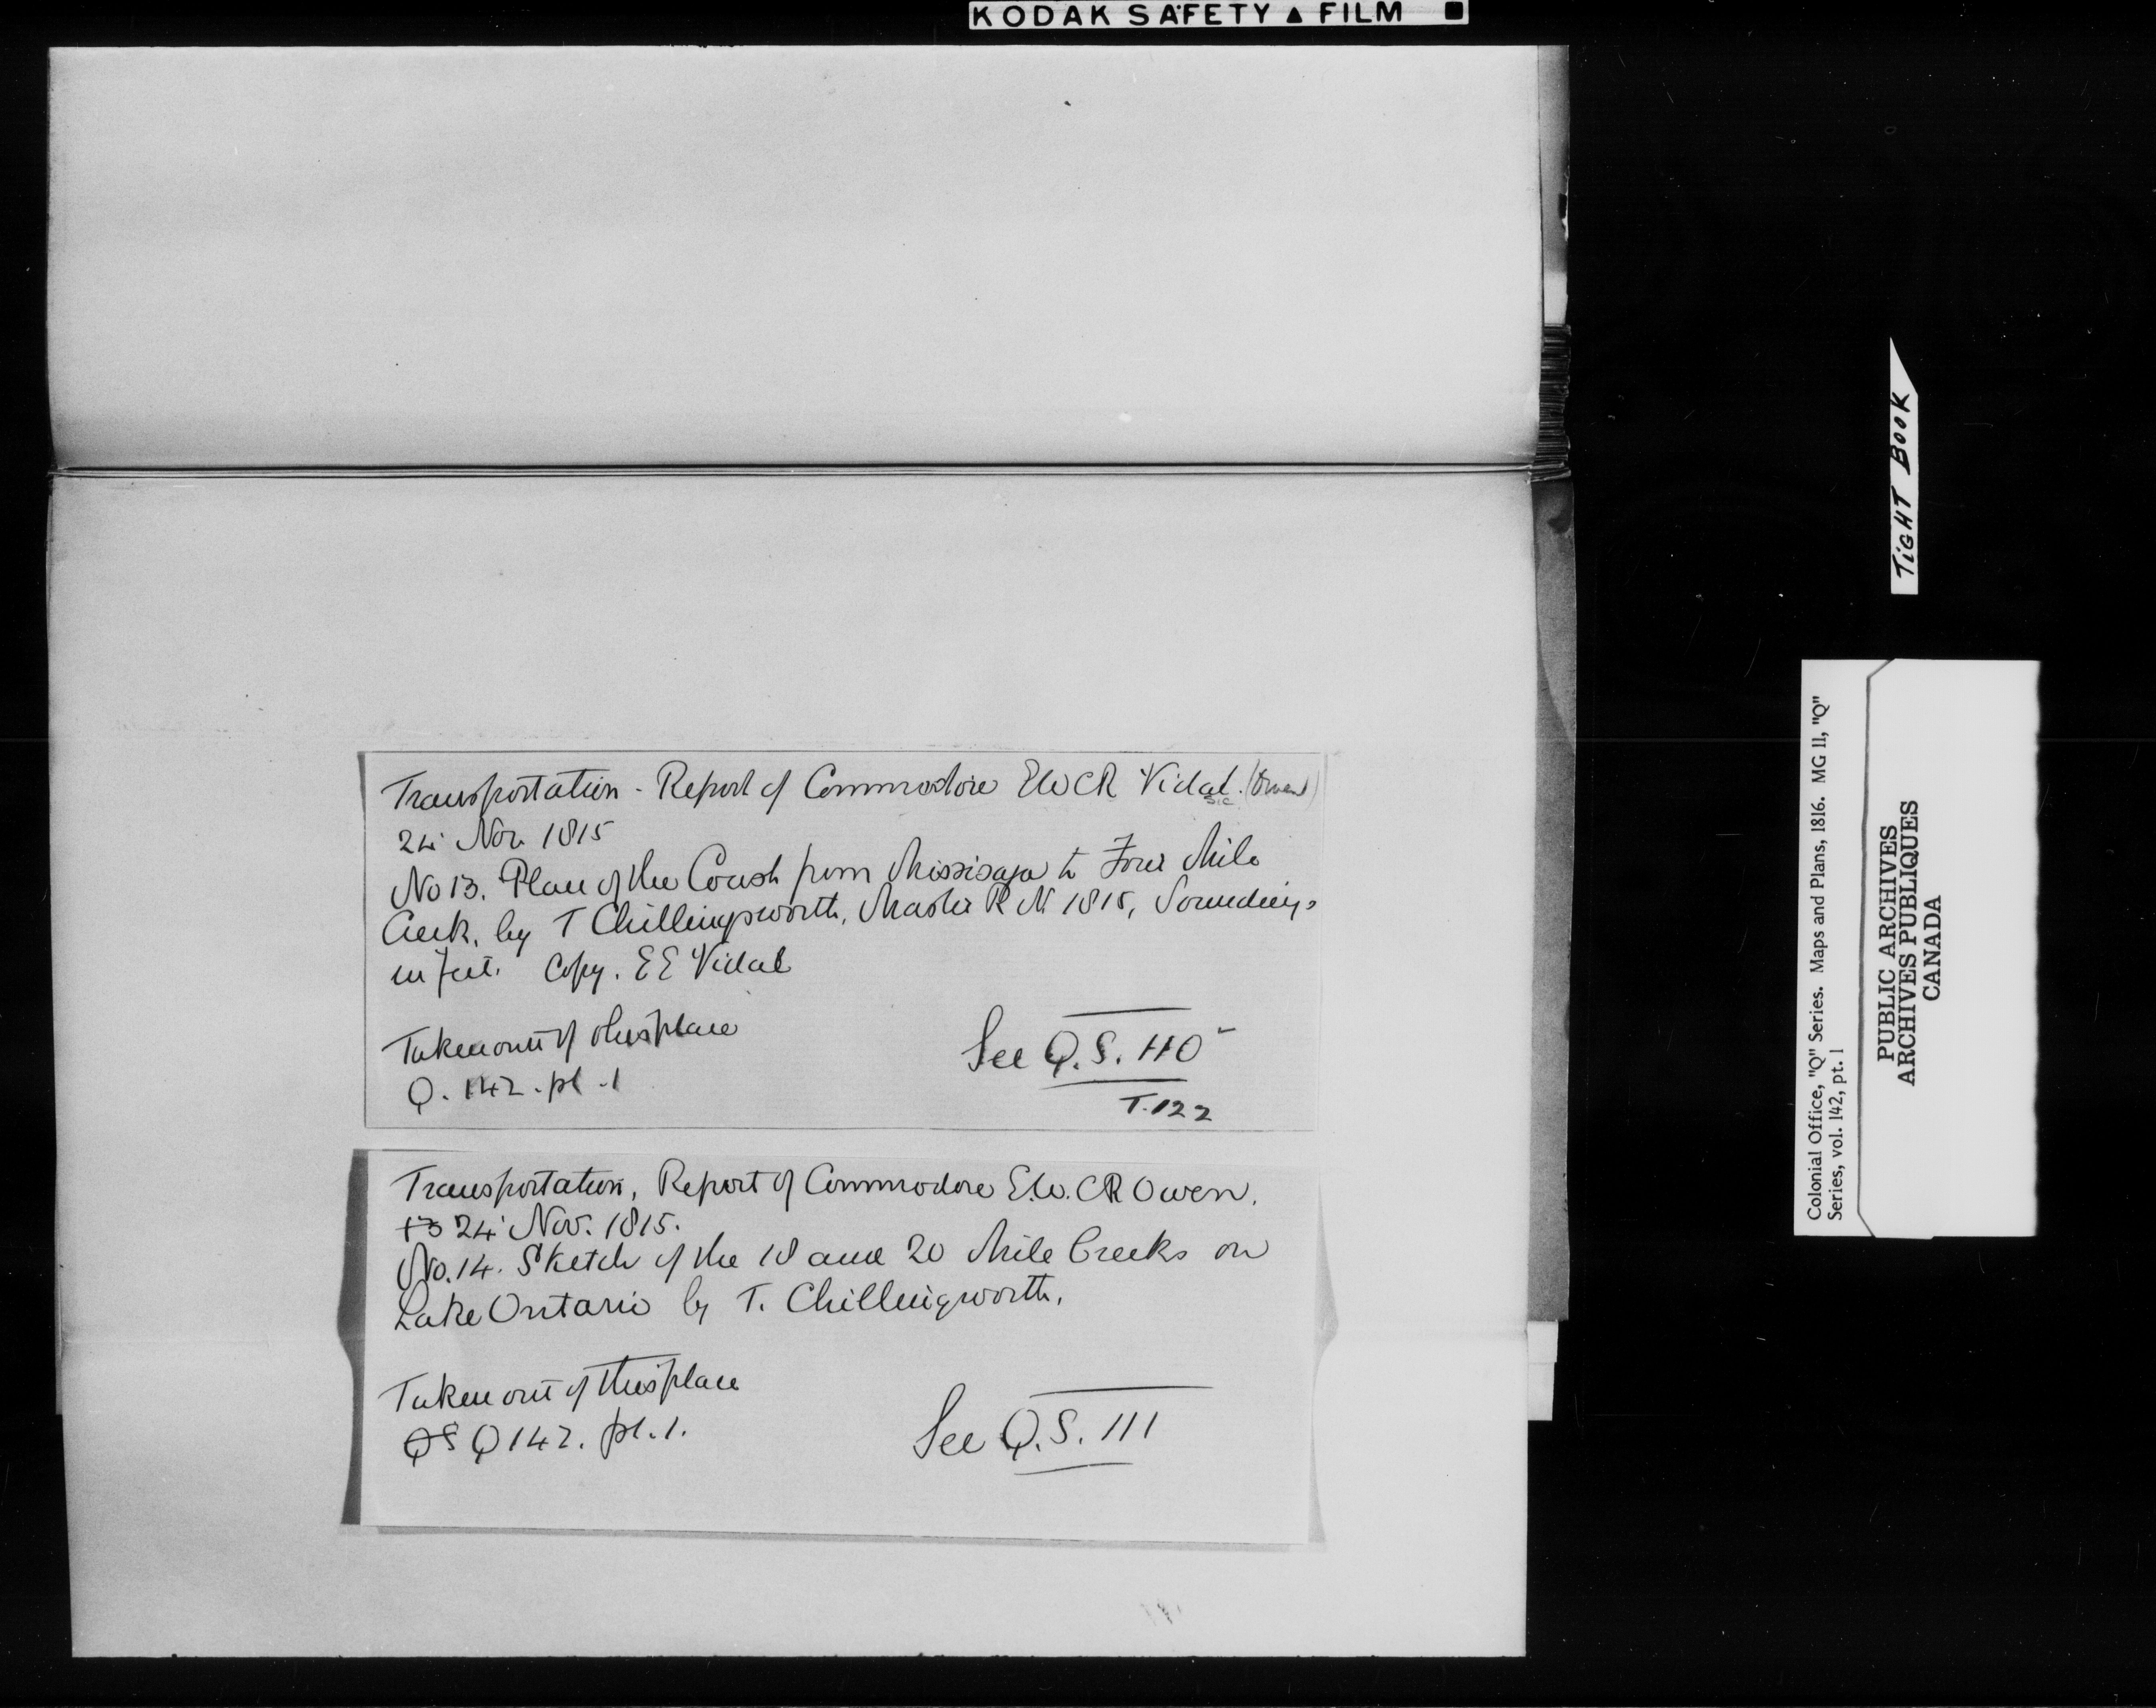 KODAK SAFETY ▲ FILM ■
Transportation - Report of Commodore EWCR Vidal. (Owen)
sic
24 Nov. 1815
No 13. Plan of the Coast from Missisaga to Four Mile
Creek, by T Chillingsworth, Master R N 1815, Soundings
in feet. Copy. E E Vidal
Taken out of this place
Q. 142. pt. 1
See Q.S. 110
T.122
Transportation, Report of Commodore E.W.CR Owen.
13 24 Nov. 1815.
No. 14. Sketch of the 18 and 20 Mile Creeks on
Lake Ontario by T. Chillingworth.
Taken out of this place
QS Q 142. pt. 1.
See Q.S. 111
TIGHT BOOK
Colonial Office, "Q" Series. Maps and Plans, 1816. MG 11, "Q"
Series, vol. 142, pt. 1
PUBLIC ARCHIVES
ARCHIVES PUBLIQUES
CANADA